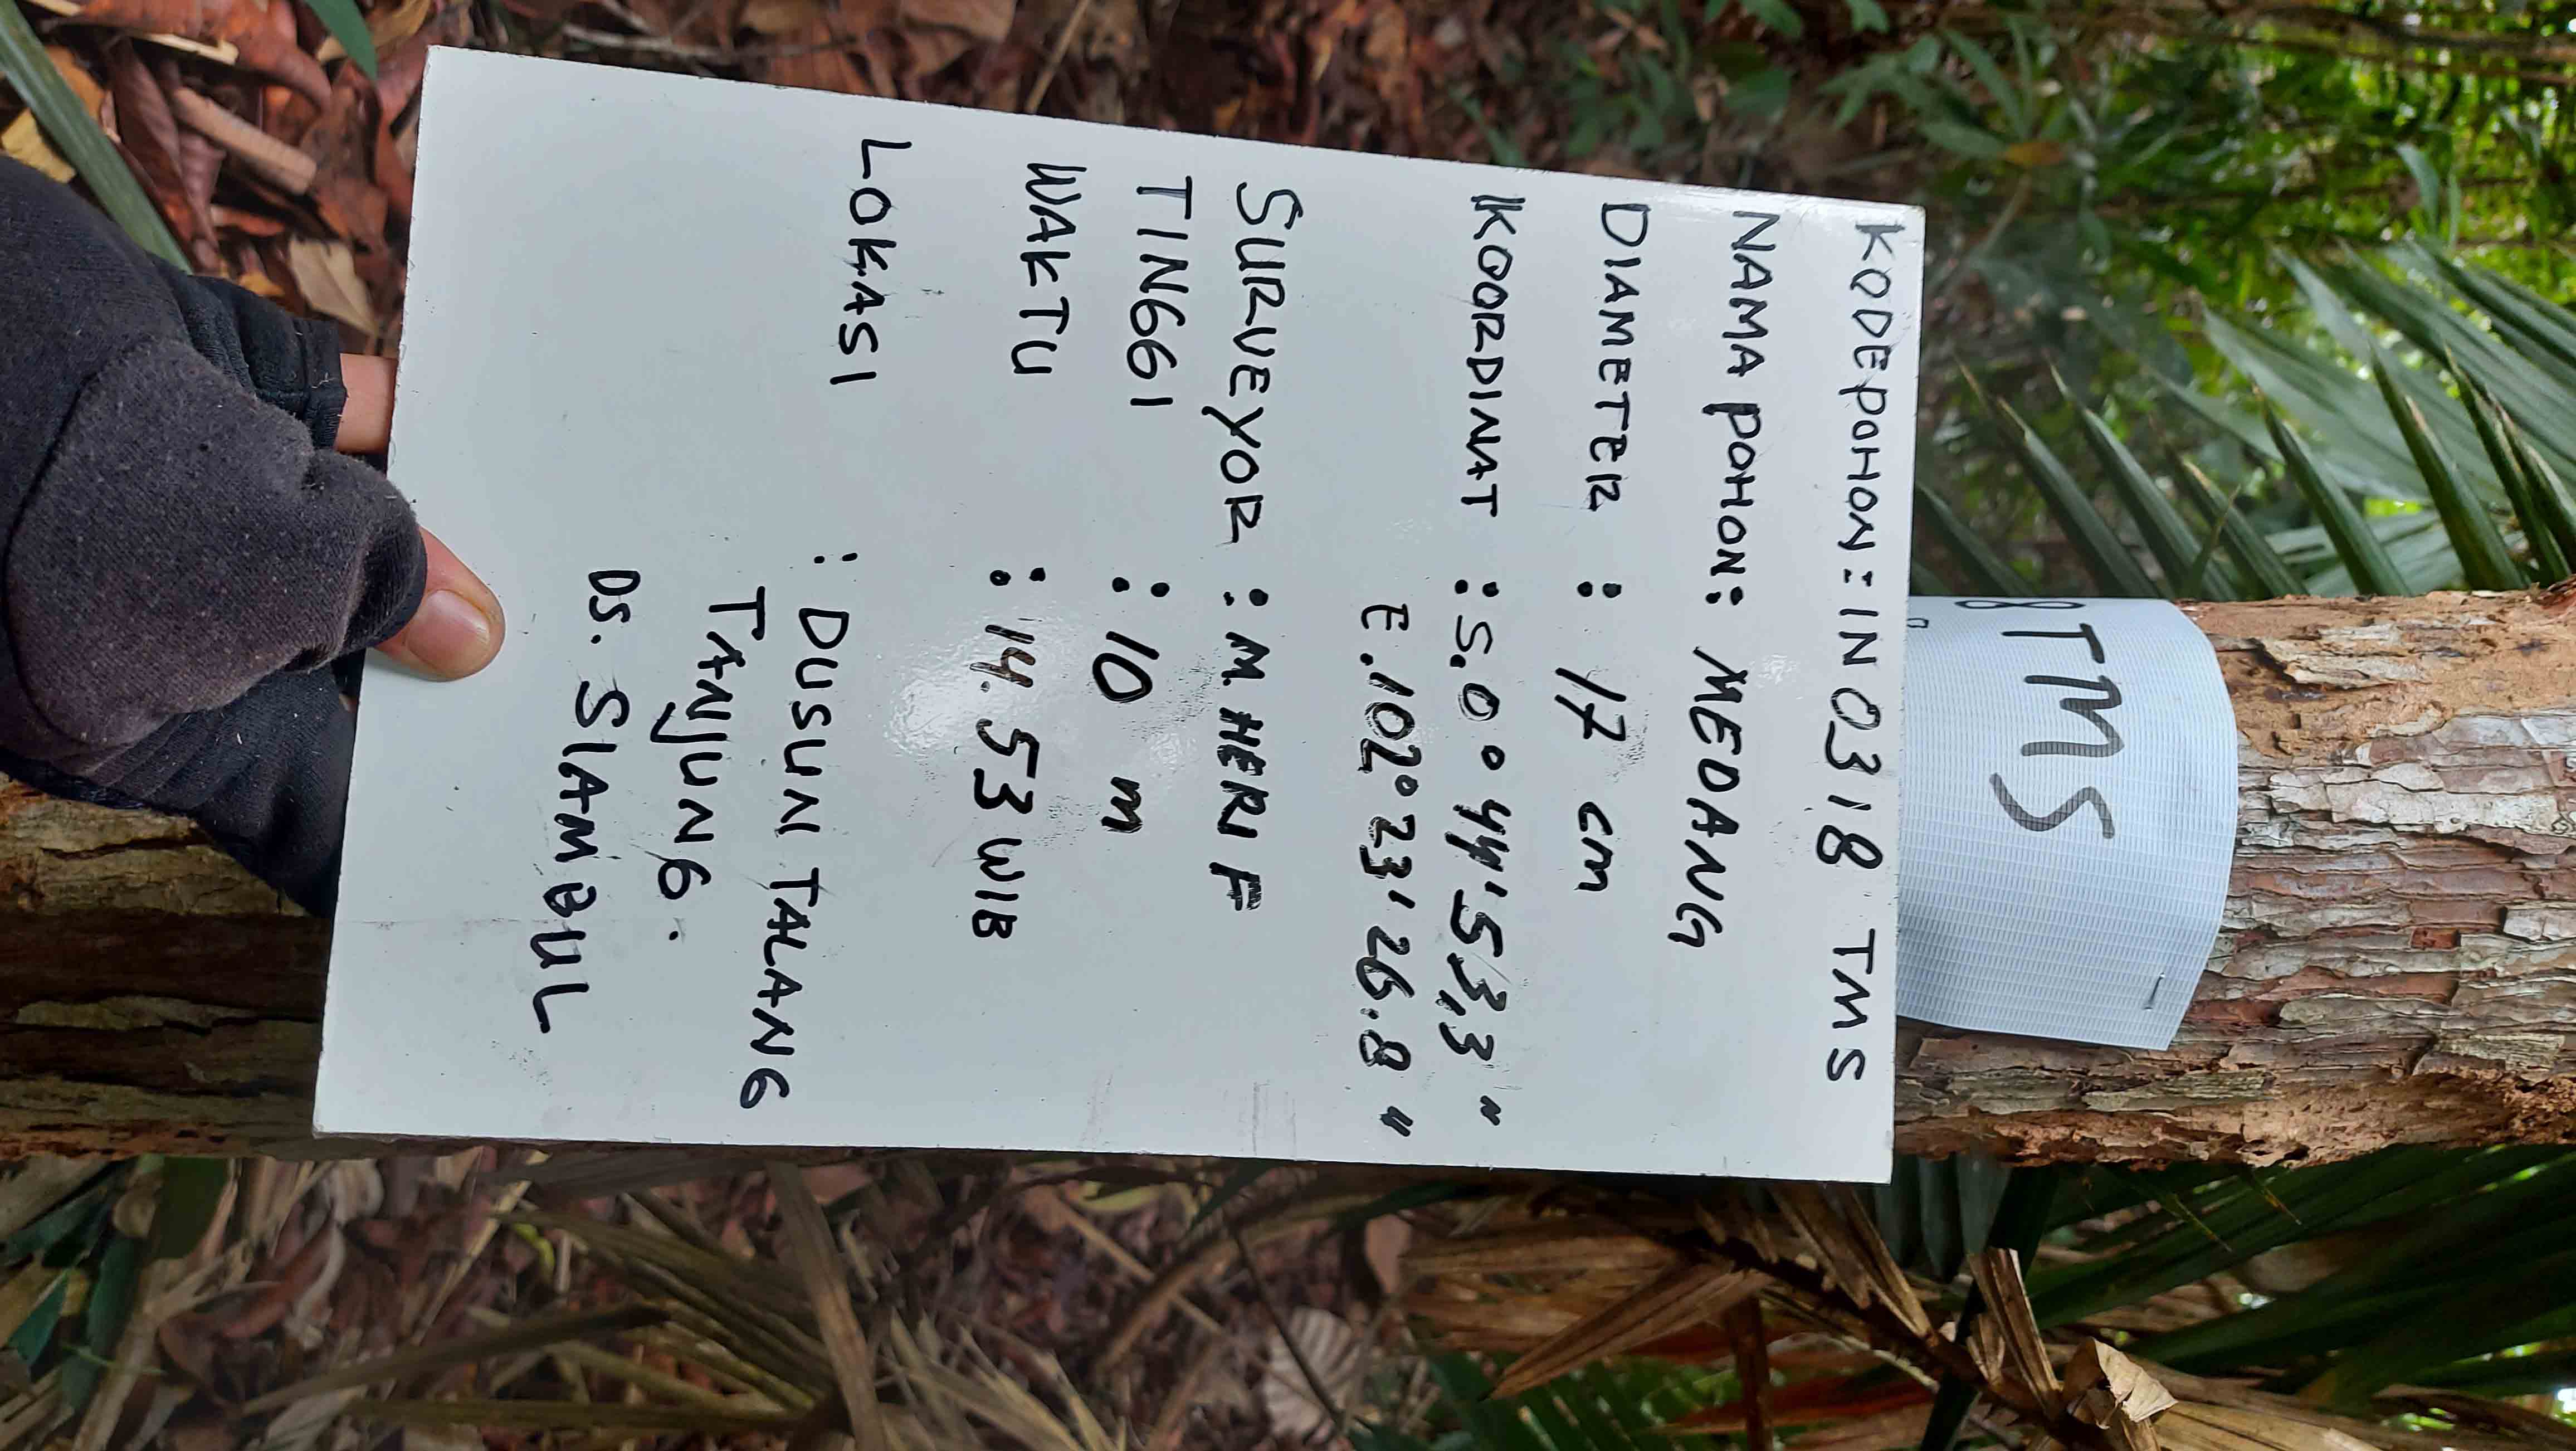 KODE POHON: IN 0318 TMS
NAMA POHON: MEDANG
DIAMETER : 17 cm
KOORDINAT : S. 0° 44' 53,3"
E. 102° 23' 26.8"
SURVEYOR : M. HERI F
TINGGI : 10 m
WAKTU : 14.53 WIB
LOKASI : DUSUN TALANG
TANJUNG.
DS. SIAMBUL
8 TMS